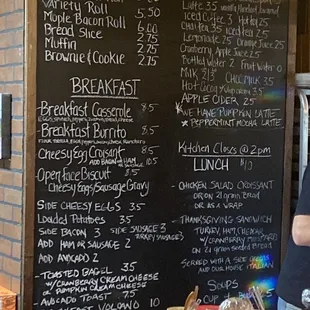 Variety Roll
Maple Bacon Roll 5.50
Bread Slice 2.75
Muffin 2.75
Brownie & Cookie 2.75
BREAKFAST
Breakfast Casserole 8.5
Breakfast Burrito 8.5
Cheesy Egg Croissant 8.5
ADD BACON or HAM or SAUSAGE
Open Face Biscuit 8.5
Cheesy Eggs/Sausage Gravy
SIDE CHEESY EGGS 3.5
Loaded Potatoes 3.5
SIDE BACON 3 SIDE SAUSAGE 3
(TURKEY SAUSAGE)
ADD HAM OR SAUSAGE 2
ADD AVOCADO 2
TOASTED BAGEL 3.5
W/ CRANBERRY CREAM CHEESE
OR PUMPKIN CREAM CHEESE
AVOCADO TOAST 7.5
BREAKFAST VOLCANO 10
Latte 3.5
Iced Coffee 3 Hot 2.5
Chai Tea 3.5 Iced Tea 2.5
Lemonade 2.5 Orange Juice 2.5
Cranberry Apple Juice 2.5
Bottled Water 2 Fruit Water 0
Milk Choc Milk 3.5
Hot Cocoa
APPLE CIDER 2.5
WE HAVE PUMPKIN LATTE
PEPPERMINT MOCHA LATTE
Kitchen Closes @ 2pm
LUNCH $10
CHICKEN SALAD CROISSANT
OR ON 21 Grain Bread
OR AS A WRAP
THANKSGIVING SANDWICH
TURKEY, HAM, CHEDDAR
W/ CRANBERRY MUSTARD
ON 21 GRAIN BREAD
SERVED WITH A SIDE
AND OUR HOUSE ITALIAN
SOUPS
CUP